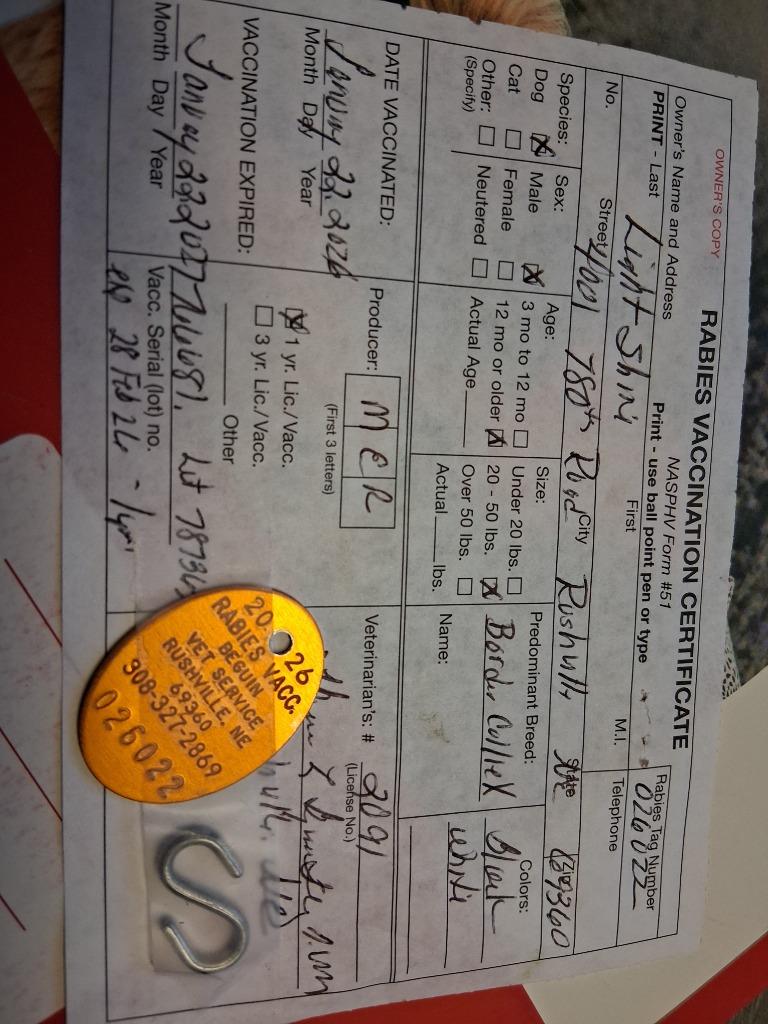 OWNER'S COPY
RABIES VACCINATION CERTIFICATE
NASPHV Form #51
Owner's Name and Address
Print - use ball point pen or type
Rabies Tag Number
026022
PRINT - Last First M.I. Telephone
Light Shini
No. Street City State Zip
4001 780th Road Rushvlle NE 69360
Species: Sex: Age: Size: Predominant Breed: Colors:
Dog ☒ Male ☒ 3 mo to 12 mo ☐ Under 20 lbs. ☐ Border Collie X Black
Cat ☐ Female ☐ 12 mo or older ☒ 20 - 50 lbs. ☒ white
Other: ☐ Neutered ☐ Actual Age Over 50 lbs. ☐ Name:
(Specify) Actual lbs.
DATE VACCINATED: Producer: Veterinarian's: # 2091
MER (License No.)
January 22, 2026 (First 3 letters)
Month Day Year
☒ 1 yr. Lic./Vacc.
☐ 3 yr. Lic./Vacc.
VACCINATION EXPIRED: Other
January 22 2027
Month Day Year
Vacc. Serial (lot) no.
exp 28 Feb 26 - 1yr
20 26
RABIES VACC.
BEGUIN
VET SERVICE
RUSHVILLE, NE
69360
308-327-2869
026022